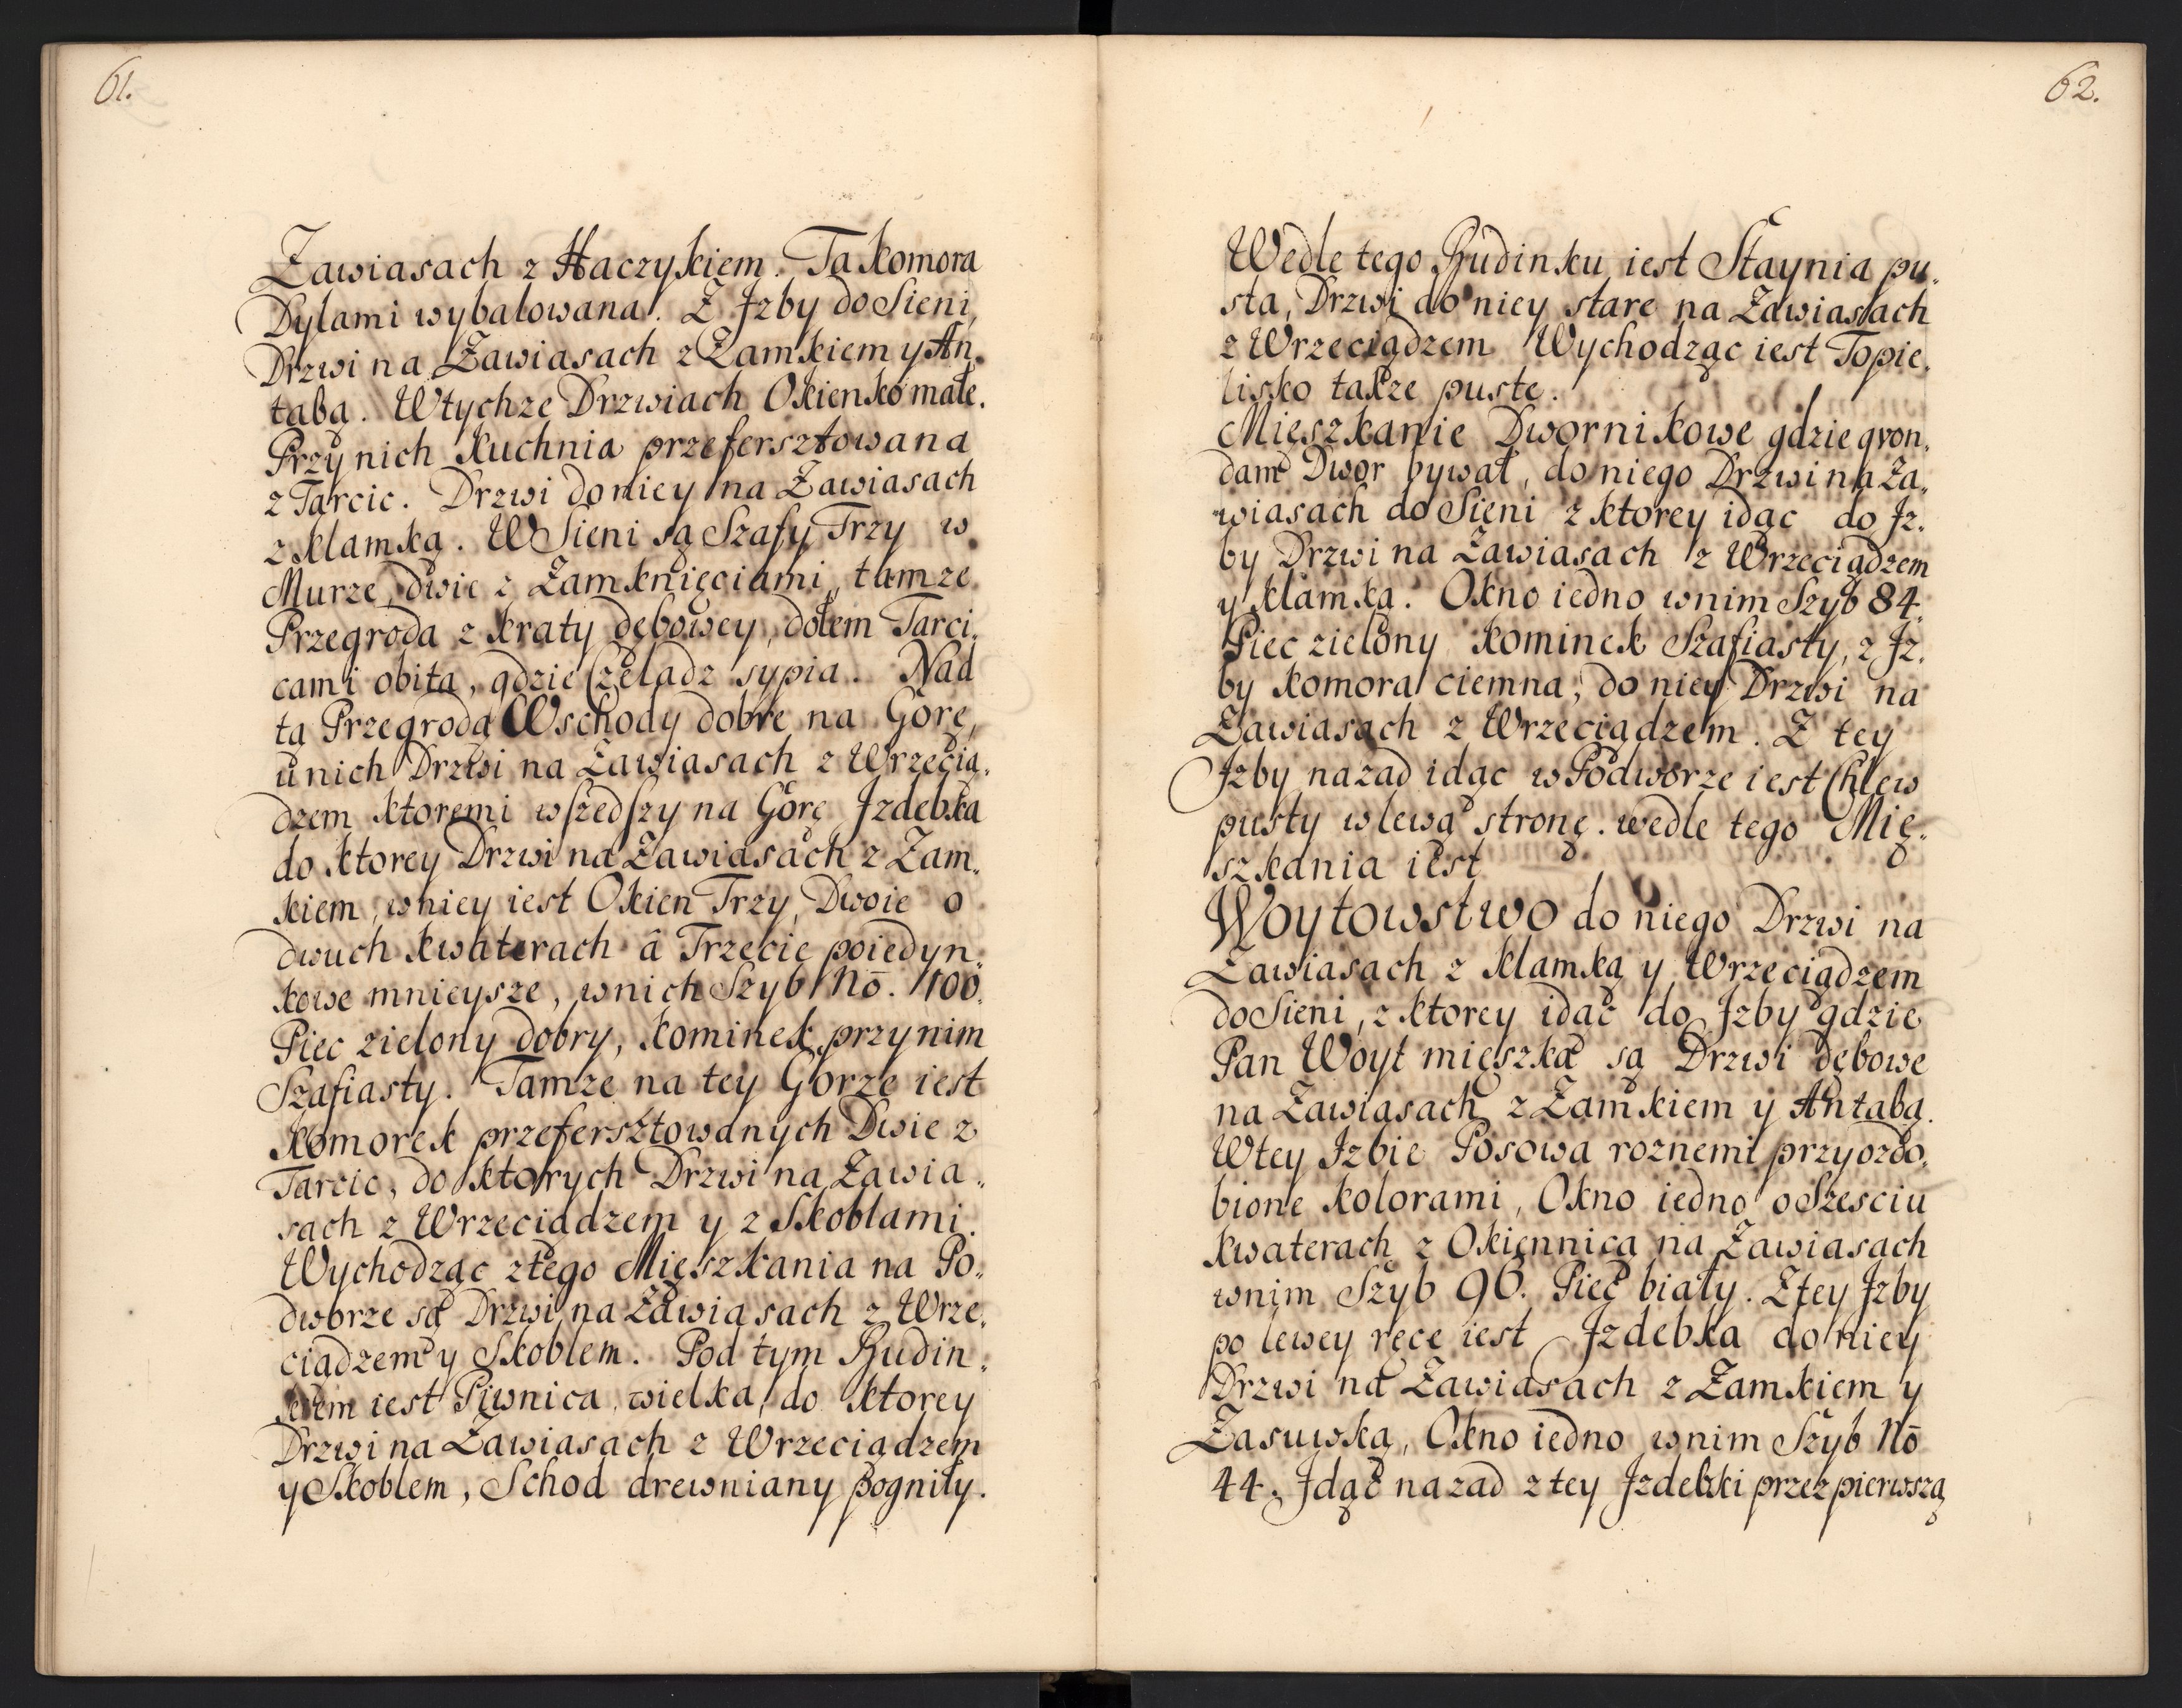 61.
Zawiasach z Haczykiem. Ta Komora
Dylami wybalowana. Z Jzby do Sieni,
Drzwi na Zawiasach z Zamkiem y An„
tabą. Wtychze Drzwiach Okienko małe.
Przy nich Kuchnia przefersztowana
z Tarcic. Drzwi do niey na Zawiasach
z Klamką. W Sieni są Szafy Trzy w
Murze, dwie z Zamknięciami, tamze
Przegroda z Kraty dębowey, dołem Tarci„
cami obita, gdzie Czeladz sypia. Nad
tą Przegrodą Wschody dobre na Gorę,
u nich Drzwi na Zawiasach z Wrzecią„
dzem ktoremi wszedszy na Gorę Jzdebka
do ktorey Drzwi na Zawiasach z Zam„
kiem, wniey iest Okien Trzy, Dwoie o
dwuch Kwaterach â Trzecie poiedyn„
kowe mnieysze, wnich Szyb Nō. 100.
Piec zielony dobry, Kominek przy nim
Szafiasty. Tamze na tey Gorze iest
Komorek przefersztowanych Dwie z
Tarcic, do ktorych Drzwi na Zawia„
sach z Wrzeciądzem y z Skoblami.
Wychodząc z tego Mięszkania na Po„
dworze są Drzwi na Zawiasach z Wrze„
ciądzem y Skoblem. Pod tym Budin„
kiem iest Piwnica wielka, do ktorey
Drzwi na Zawiasach z Wrzeciądzem
y Skoblem, Schod drewniany pogniły.
62.
Wedle tego Budinku iest Staynia pu„
sta, Drzwi do niey stare na Zawiasach
z Wrzeciądzem Wychodząc iest Topie„
lisko takze puste.
Mięszkanie Dwornikowe gdzie qvon„
dam Dwor bywał, do niego Drzwi na Za„
wiasach do Sieni z ktorey idąc do Jz„
by Drzwi na Zawiasach z Wrzeciądzem
y Klamką. Okno iedno wnim Szyb 84.
Piec zielony Kominek Szafiasty, z Jz„
by Komora ciemna, do niey Drzwi na
Zawiasach z Wrzeciądzem. Z tey
Jzby nazad idąc w Podworze iest Chlew
pusty w lewą stronę. wedle tego Mię„
szkania iest
Woytowstwo do niego Drzwi na
Zawiasach z Klamką y Wrzeciądzem
do Sieni, z ktorey idąc do Jzby gdzie
Pan Woyt mięszka są Drzwi dębowe
na Zawiasach z Zamkiem y Antabą.
Wtey Jzbie Posowa roznemi przyozdo„
bione Kolorami, Okno iedno o Szesciu
Kwaterach z Okiennicą na Zawiasach
wnim Szyb 96. Piec biały. Z tey Jzby
po lewey ręce iest Jzdebka do niey
Drzwi na Zawiasach z Zamkiem y
Zasuwką, Okno iedno wnim Szyb Nō
44. Jdąc nazad z tey Jzdebki przez pierwszą